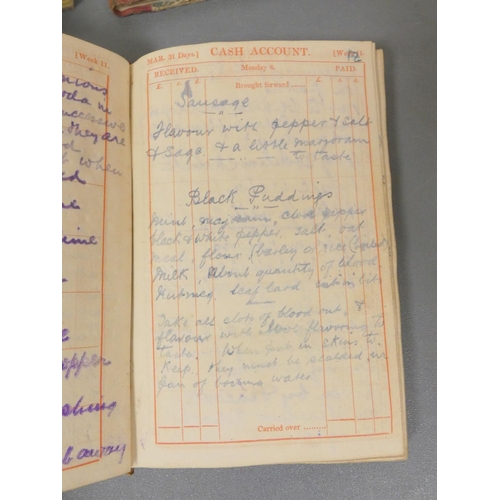 [Week 11.
MAR. 31 Days.] CASH ACCOUNT. [Week
12
RECEIVED. Monday 8. PAID.
£. Brought forward £. s.
Sausage
Flavour with pepper & salt
& Sage & a little marjoram
" " " to taste
Black Puddings
Mint, marjoram, clove pepper
black & white pepper, salt, oat
meal, flour, barley or rice (boiled
Milk, about quantity of blood
Nutmeg leaf lard cut in bits
Take all clots of blood out, &
flavour with above flavouring to
taste. When put in skins to
Keep, they must be scalded in
pan of boiling water
Carried over
they are
when
opper
away